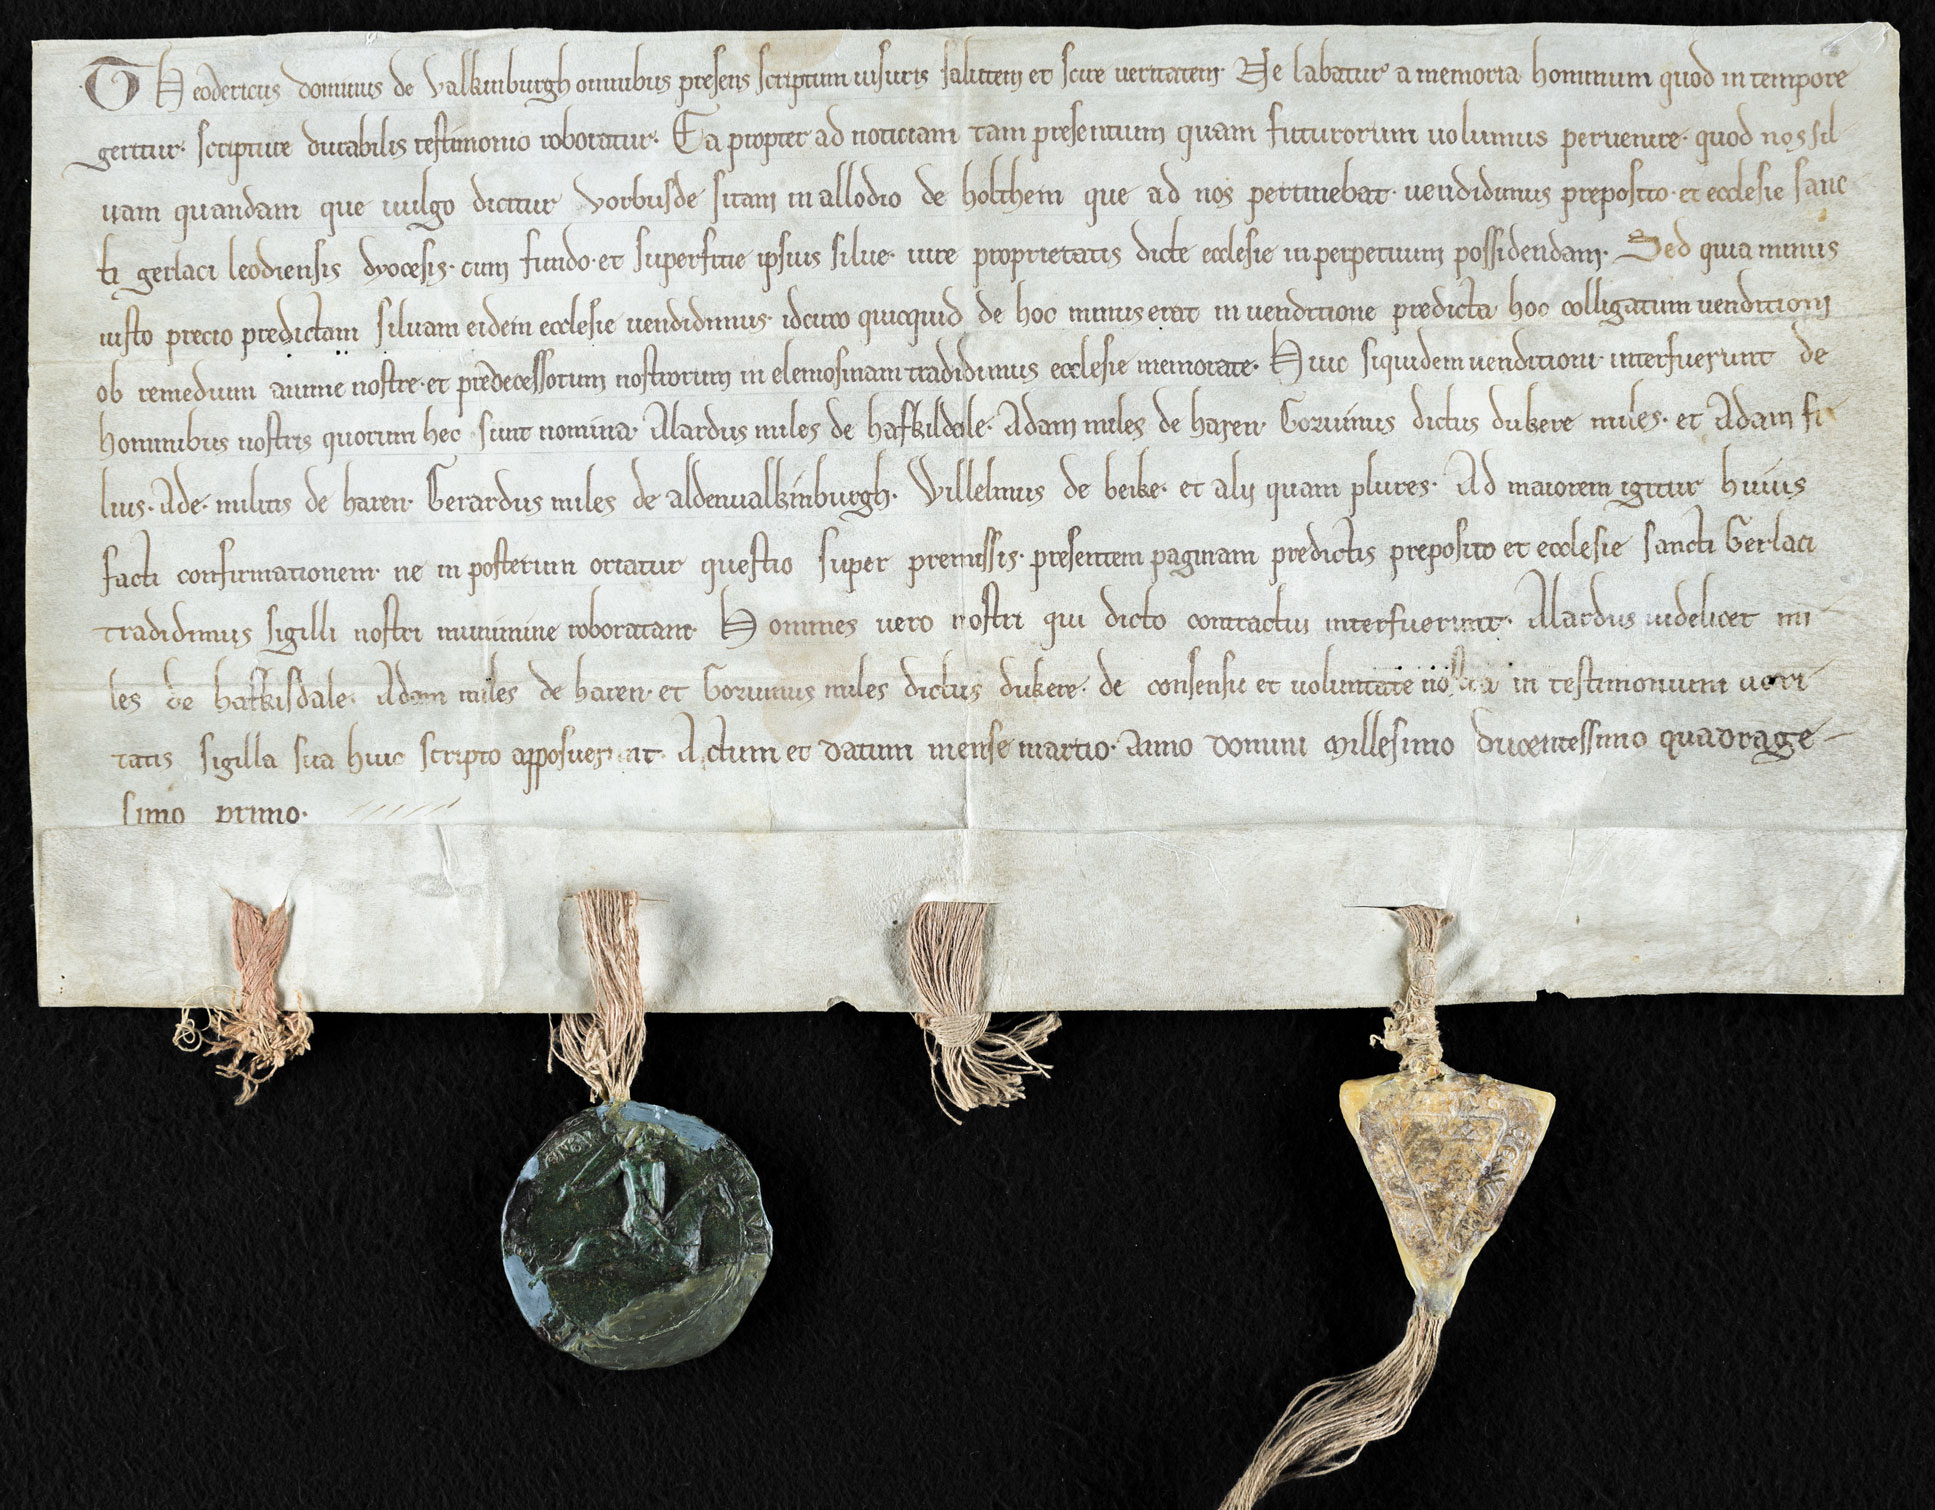 THeodericus dominus de valkinburgh omnibus presens scriptum uisuris salutem et scire ueritatem. Ne labatur a memoria hominum quod in tempore
geritur. scripture durabilis testimonio roboratur. Ea propter ad noticiam tam presentium quam futurorum uolumus peruenire. quod nos sil
uam quandam que uulgo dicitur vorbusde sitam in allodio de holthem que ad nos pertinebat. uendidimus preposito. et ecclesie sanc
ti gerlaci leodiensis dyocesis. cum fundo. et superfitie ipsius silue. iure proprietatis dicte ecclesie in perpetuum possidendam. Sed quia minus
iusto precio predictam siluam eidem ecclesie uendidimus. idcirco quicquid de hoc minus erat in uenditione predicta hoc colligatum uenditioni
ob remedium anime nostre. et predecessorum nostrorum in elemosinam tradidimus ecclesie memorate. Huic siquidem uenditioni interfuerunt de
hominibus nostris quorum hec sunt nomina. Alardus miles de hafkisdale. Adam miles de haren. Gozuinus dictus dukere miles. et Adam fi
lius. Ade. militis de haren. Gerardus miles de aldenualkinburgh. Willelmus de beike. et alij quam plures. Ad maiorem igitur huius
facti confirmationem. ne in posterum oriatur questio super premissis. presentem paginam predictis preposito et ecclesie sancti Gerlaci
tradidimus sigilli nostri munimine roboratam. Homines uero nostri qui dicto contractui interfuerunt. Alardus uidelicet mi
les de hafkisdale. Adam miles de haren. et Gozuinus miles dictus dukere. de consensu et uoluntate nostra in testimonium ueri
tatis sigilla sua huic scripto apposuerunt. Actum et datum mense martio. Anno domini Millesimo ducentessimo quadrage
simo primo.